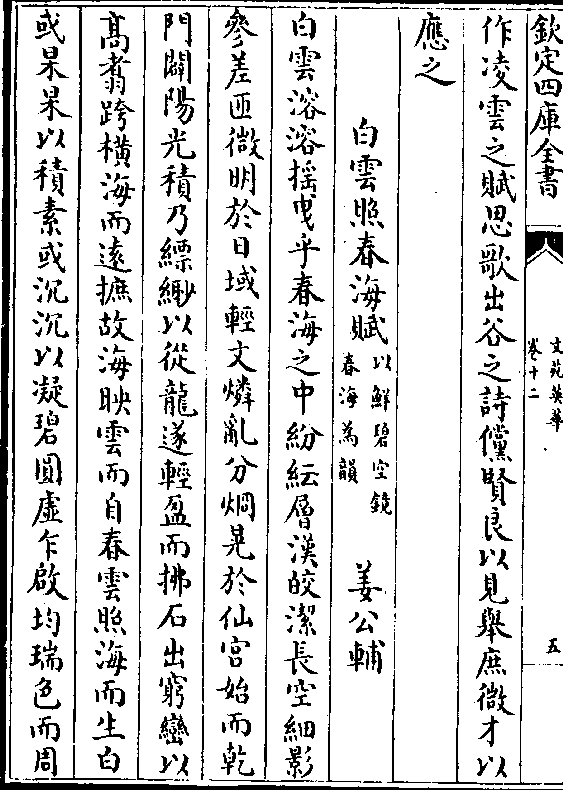 欽定四庫全書
文苑英華
卷十二
五
作凌雲之賦思歌出谷之詩儻賢良以見舉庶微才以
應之
白雲照春海賦以鮮碧空鏡春海為韻 姜公輔
白雲溶溶摇曳乎春海之中紛紜層漢皎潔長空細影
參差匝微明於日域輕文燐亂分烱晃於仙宮始而乾
門闢陽光積乃縹緲以從龍遂輕盈而拂石出窮巒以
髙翥跨横海而逺摭故海映雲而自春雲照海而生白
或杲杲以積素或沉沉以凝碧圓虛乍啟均瑞色而周